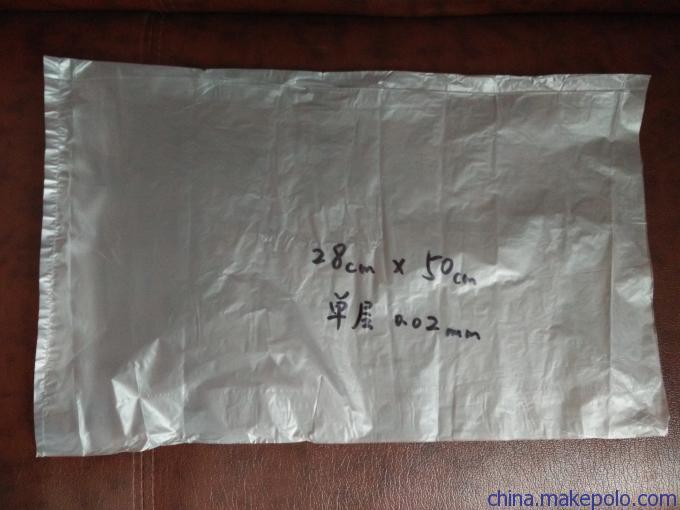 28cm x 50cm
单层 0.02mm
china.makepolo.com